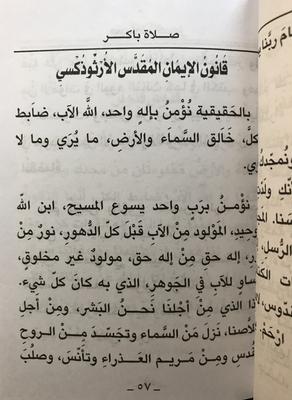 صلاة باكر
قَانُونُ الإِيمَانِ المُقَدَّسِ الأُرْثُوذُكْسِي
بالحَقيقية نُؤْمنُ بإله واحد، الله الآب، ضابط
كلِّ، خَالق السماَء والأرضِ، ما يُرَي وما لا
ري.
نؤمنُ برَبٍ واحد يسوعَ المسيحِ، ابن الله
وحيدِ، المَوْلودِ منَ الآبِ قَبْلَ كلِّ الدُّهورِ، نورٌ منْ
رٍ، إله حق مِنْ إله حق، مولودٌ غير مخلوقٍ،
ساوٍ للآب في الجوهرِ، الذي به كانَ كلُّ شيء.
ذا الذي مِنْ أجْلنا نَحنُ البَشر، ومِنْ أجلِ
لاَصنا، نزلَ مِنَ السَّماء وتجسَّد مِنْ الروحِ
قدسِ ومِنْ مَريم العَذراءِ وتأنَّسَ، وصلبَ
- ٥٧ -